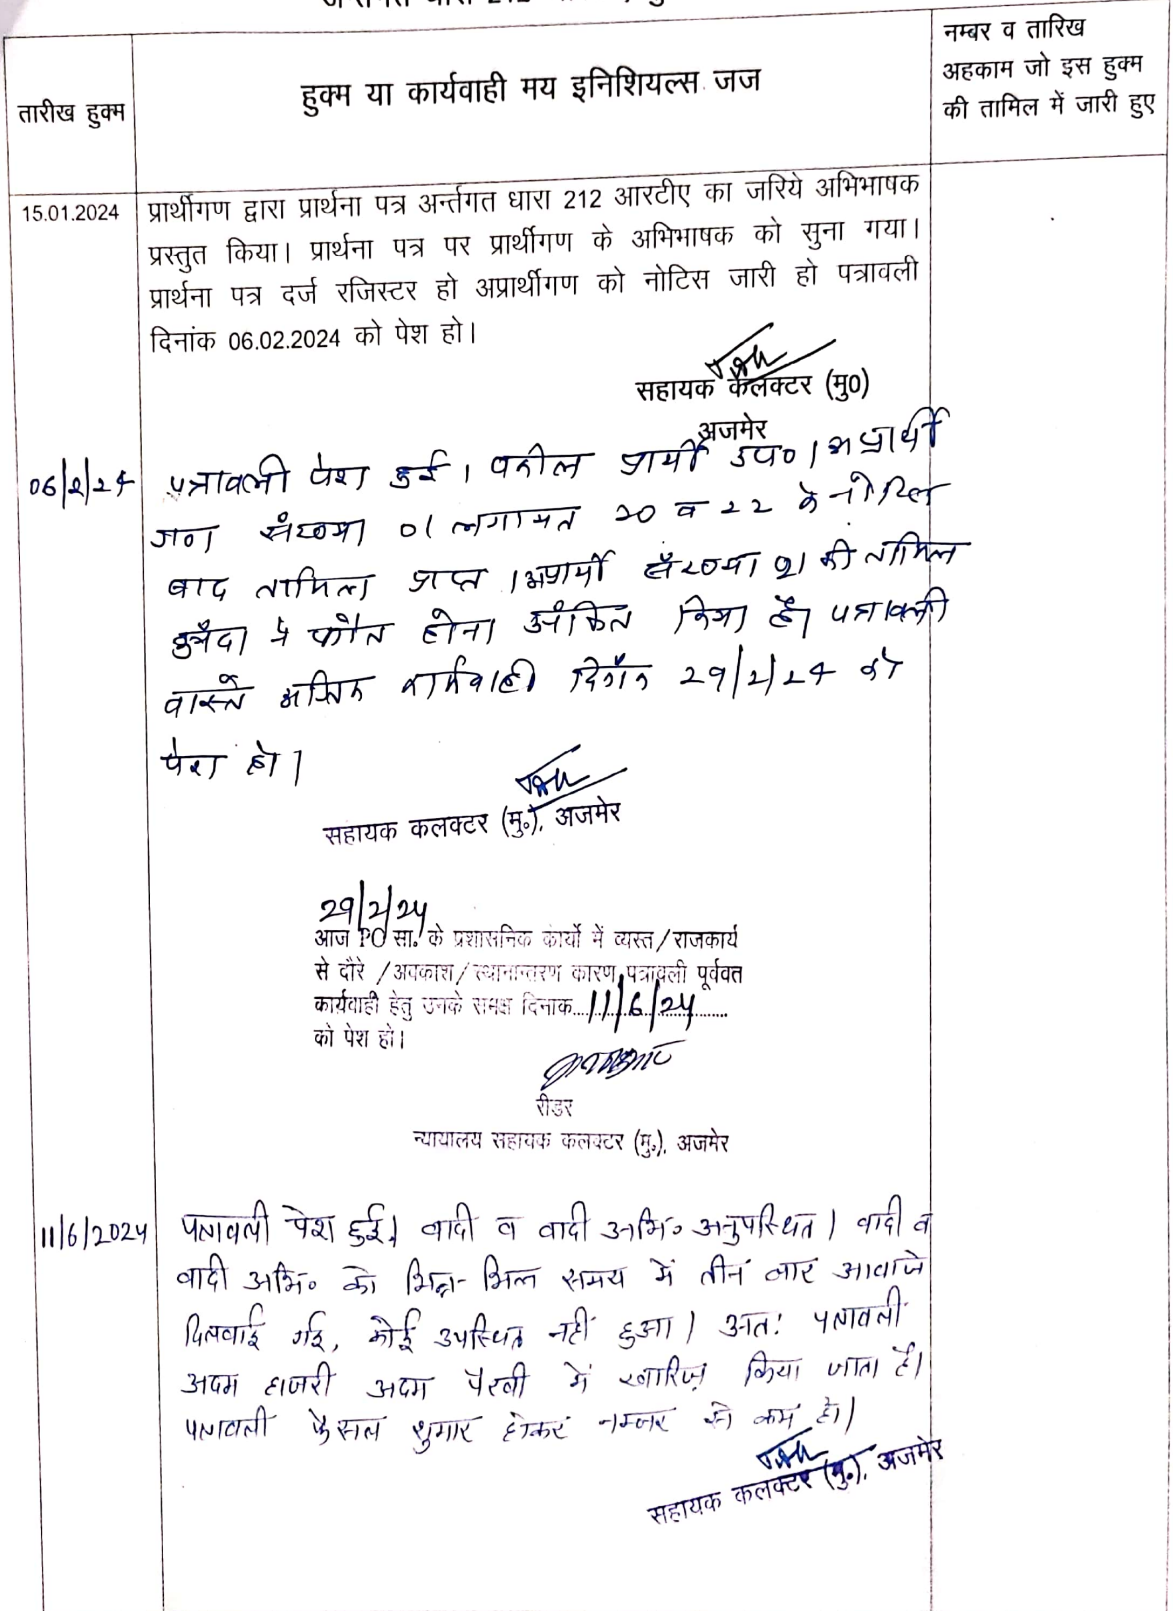 तारीख हुक्म
हुक्म या कार्यवाही मय इनिशियल्स जज
नम्बर व तारिख
अहकाम जो इस हुक्म
की तामिल में जारी हुए
15.01.2024
प्रार्थीगण द्वारा प्रार्थना पत्र अर्न्तगत धारा 212 आरटीए का जरिये अभिभाषक
प्रस्तुत किया। प्रार्थना पत्र पर प्रार्थीगण के अभिभाषक को सुना गया।
प्रार्थना पत्र दर्ज रजिस्टर हो अप्रार्थीगण को नोटिस जारी हो पत्रावली
दिनांक 06.02.2024 को पेश हो।
सहायक कलक्टर (मु0)
अजमेर
06/2/24
पत्रावली पेश हुई। वकील प्रार्थी उप०। अप्रार्थी
गण संख्या 01 लगायत 20 व 22 के नोटिस
बाद तामिल प्राप्त। अप्रार्थी संख्या 21 की तामिल
में फौत होना अंकित किया है। पत्रावली
वास्ते अग्रिम कार्यवाही दिनाँक 29/2/24 को
पेश हो।
सहायक कलक्टर (मु०), अजमेर
29/2/24
आज PO सा. के प्रशासनिक कार्यो में व्यस्त/राजकार्य
से दौरे /अवकाश/स्थानान्तरण कारण पत्रावली पूर्ववत
कार्यवाही हेतु उनके समक्ष दिनाक...11/6/24......
को पेश हो।
रीडर
न्यायालय सहायक कलक्टर (मु०), अजमेर
11/6/2024
पत्रावली पेश हुई। वादी व वादी अभि० अनुपस्थित। वादी व
वादी अभि० को भिन्न-भिन्न समय में तीन बार आवाजे
दिलवाई गई, कोई उपस्थित नहीं हुआ। अतः पत्रावली
अदम हाजरी अदम पैरवी में खारिज़ किया जाता है।
पत्रावली फैसल शुमार होकर नम्बर से कम हो।
सहायक कलक्टर (मु०), अजमेर